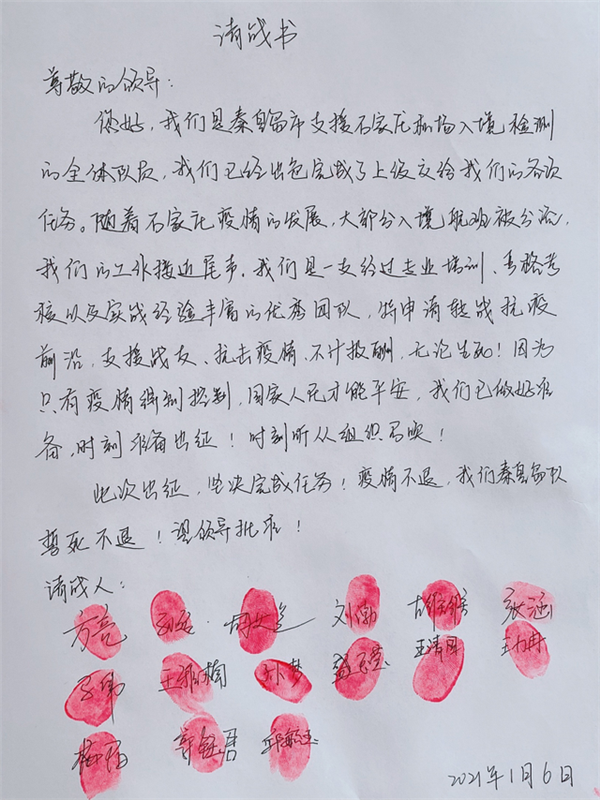 请战书
尊敬的领导：
您好，我们是秦皇岛市支援石家庄机场入境检测
的全体队员，我们已经出色完成了上级交给我们的各项
任务。随着石家庄疫情的发展，大部分入境航班被分流，
我们的工作接近尾声。我们是一支经过专业培训、严格考
核以及实战经验丰富的优秀团队，特申请转战抗疫
前沿，支援战友、抗击疫情、不计报酬，无论生死！因为
只有疫情得到控制，国家人民才能平安，我们已做好准
备，时刻准备出征！时刻听从组织召唤！
此次出征，坚决完成任务！疫情不退，我们秦皇岛队
誓死不退！望领导批准！
请战人：
方亮 刘 张涵
王 王清
2021年1月6日